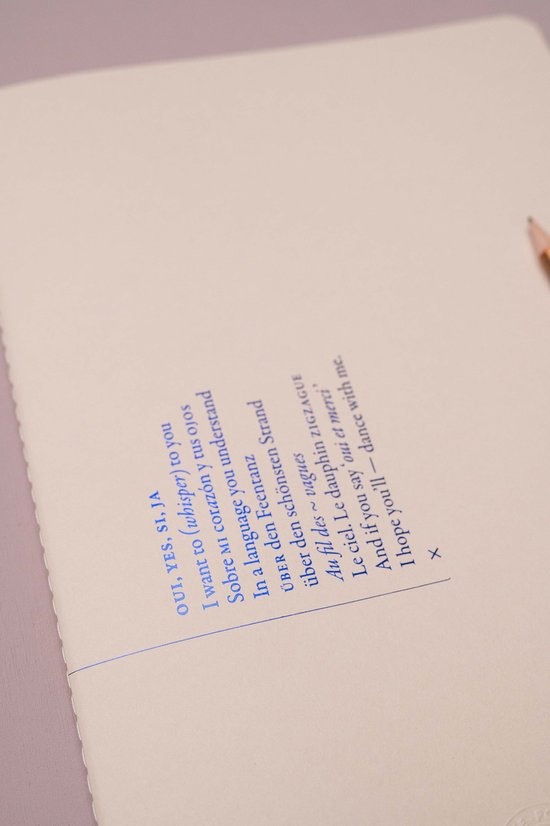 OUI, YES, SI, JA
I want to (whisper) to you
Sobre MI corazón y tus ojos
In a language you understand
ÜBER den Feentanz
über den schönsten Strand
Au fil des ~ vagues
Le ciel, Le dauphin ZIGZAGUE
And if you say ‘oui et merci’
I hope you’ll — dance with me.
×